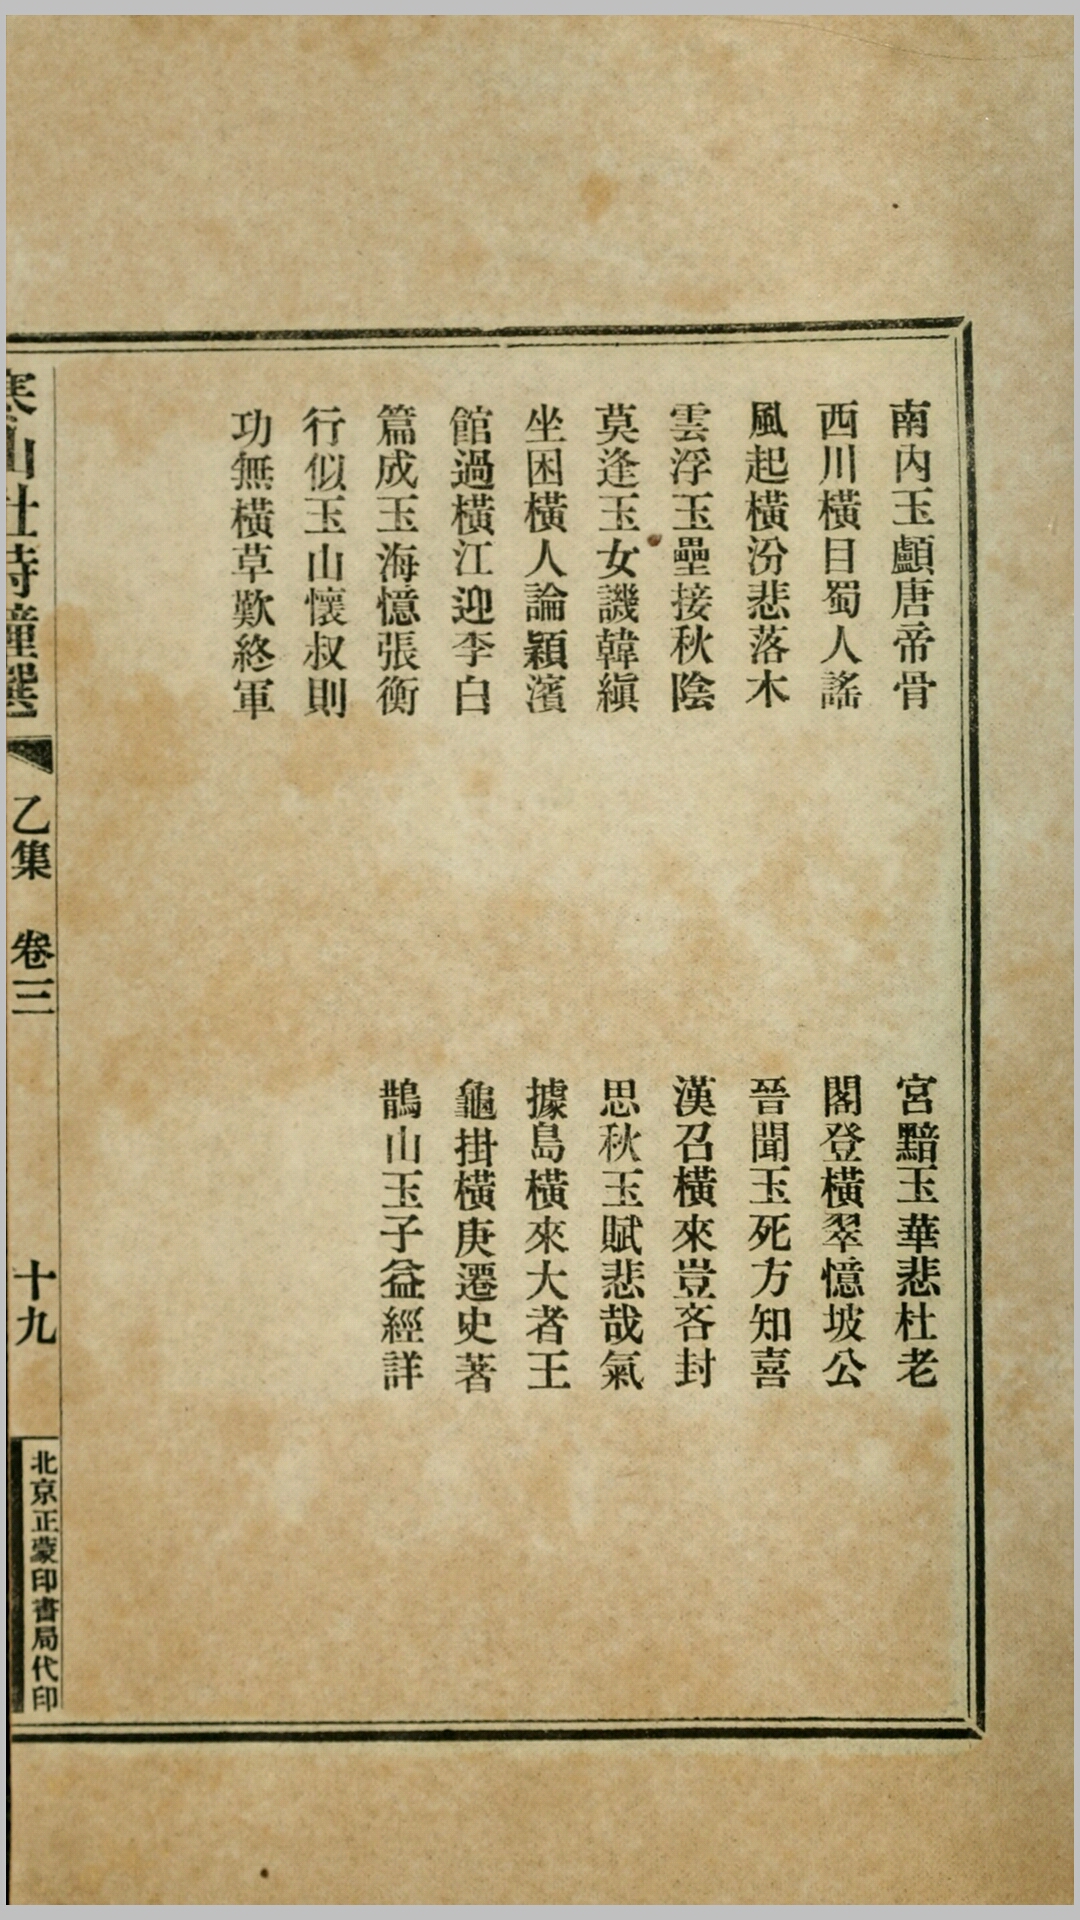 南內玉顱唐帝骨
西川橫目蜀人謠
風起橫汾悲落木
雲浮玉壘接秋陰
莫逢玉女譏韓縝
坐困橫人論穎濱
館過橫江迎李白
篇成玉海憶張衡
行似玉山懷叔則
功無橫草歎終軍
宮黯玉華悲杜老
閣登橫翠憶坡公
晉聞玉死方知喜
漢召橫來豈吝封
思秋玉賦悲哉氣
據島橫來大者王
龜掛橫庚遷史著
鵲山玉子益經詳
寒山社詩鐘選
乙集 卷三
十九
北京正蒙印書局代印